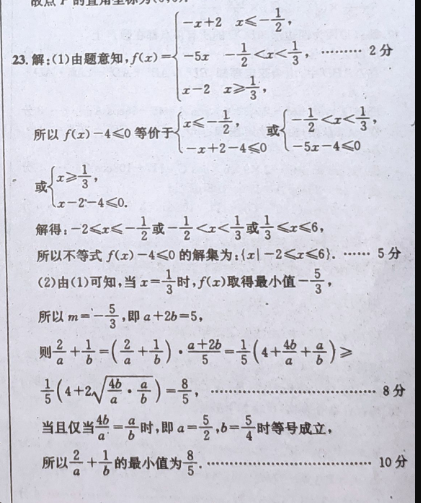 故点 P 的直角坐标为
23.解:(1)由题意知,f(x)={−x+2 x≤−1/2, −5x −1/2<x<1/3, x−2 x≥1/3, ……… 2分
所以 f(x)−4≤0 等价于{x≤−1/2, −x+2−4≤0 或{−1/2<x<1/3, −5x−4≤0
或{x≥1/3, x−2−4≤0.
解得:−2≤x≤−1/2或−1/2<x<1/3或1/3≤x≤6,
所以不等式 f(x)−4≤0 的解集为:{x|−2≤x≤6}. …… 5分
(2)由(1)可知,当 x=1/3时,f(x)取得最小值−5/3,
所以 m=−5/3,即 a+2b=5,
则2/a+1/b=(2/a+1/b)·(a+2b)/5=1/5(4+4b/a+a/b)≥
1/5(4+2√(4b/a·a/b))=8/5, ……………………… 8分
当且仅当4b/a=a/b时,即 a=5/2,b=5/4时等号成立,
所以2/a+1/b的最小值为8/5. ……………………… 10分